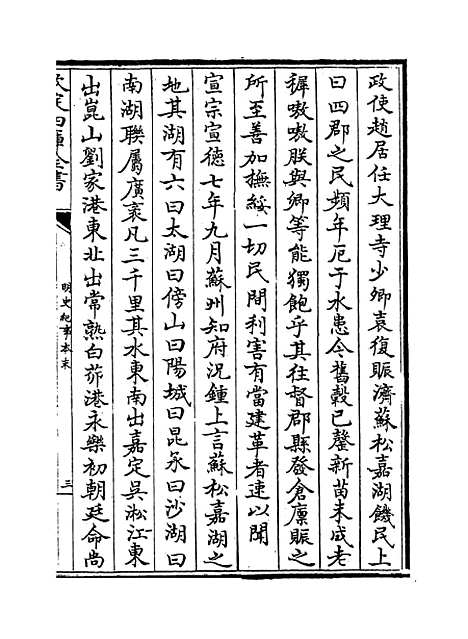 政使趙居任大理寺少卿袁復賑濟蘇松嘉湖饑民上
曰四郡之民頻年厄于水患今舊穀已罄新苗未成老
穉嗷嗷朕與卿等能獨飽乎其往督郡縣發倉廩賑之
所至善加撫綏一切民間利害有當建革者速以聞
宣宗宣德七年九月蘇州知府況鍾上言蘇松嘉湖之
地其湖有六曰太湖曰傍山曰陽城曰昆承曰沙湖曰
南湖聯屬廣袤凡三千里其水東南出嘉定吳淞江東
出崑山劉家港東北出常熟白茆港永樂初朝廷命尚
欽定四庫全書
明史紀事本末
三